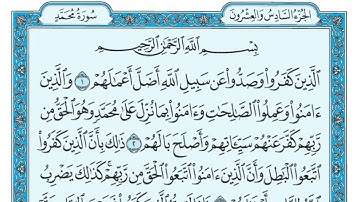 الجزء السادس والعشرون
سورة محمد
بِسْمِ اللَّهِ الرَّحْمَٰنِ الرَّحِيمِ
الَّذِينَ كَفَرُوا وَصَدُّوا عَن سَبِيلِ اللَّهِ أَضَلَّ أَعْمَٰلَهُمْ ١ وَالَّذِينَ
ءَامَنُوا وَعَمِلُوا الصَّٰلِحَٰتِ وَءَامَنُوا بِمَا نُزِّلَ عَلَىٰ مُحَمَّدٍ وَهُوَ الْحَقُّ مِن
رَّبِّهِمْ كَفَّرَ عَنْهُمْ سَيِّـَٔاتِهِمْ وَأَصْلَحَ بَالَهُمْ ٢ ذَٰلِكَ بِأَنَّ الَّذِينَ كَفَرُوا
اتَّبَعُوا الْبَٰطِلَ وَأَنَّ الَّذِينَ ءَامَنُوا اتَّبَعُوا الْحَقَّ مِن رَّبِّهِمْ كَذَٰلِكَ يَضْرِبُ